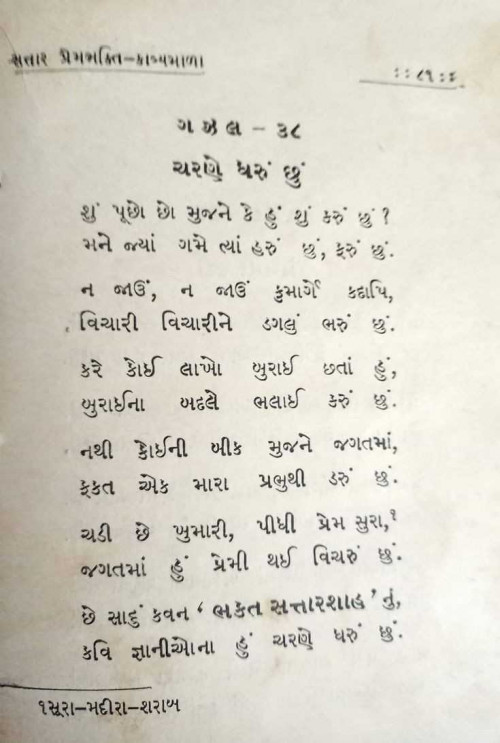 સત્તાર પ્રેમભક્તિ-કાવ્યમાળા
ગઝલ - ૩૮
ચરણે ધરું છું
શું પૂછો છો મુજને કે હું શું કરું છું?
મને જ્યાં ગમે ત્યાં હરું છું, ફરું છું.
ન જાઉં, ન જાઉં કુમાર્ગે કદાપિ,
વિચારી વિચારીને ડગલું ભરું છું.
કરે કોઈ લાખો બુરાઈ છતાં હું,
બુરાઈના બદલે ભલાઈ કરું છું.
નથી કોઈની બીક મુજને જગતમાં,
ફકત એક મારા પ્રભુથી ડરું છું.
ચડી છે ખુમારી, પીધી પ્રેમ સુરા,૧
જગતમાં હું પ્રેમી થઈ વિચરું છું.
છે સાદું કવન ‘ભકત સત્તારશાહ’નું,
કવિ જ્ઞાનીઓના હું ચરણે ધરું છું.
૧સૂરા-મદીરા-શરાબ